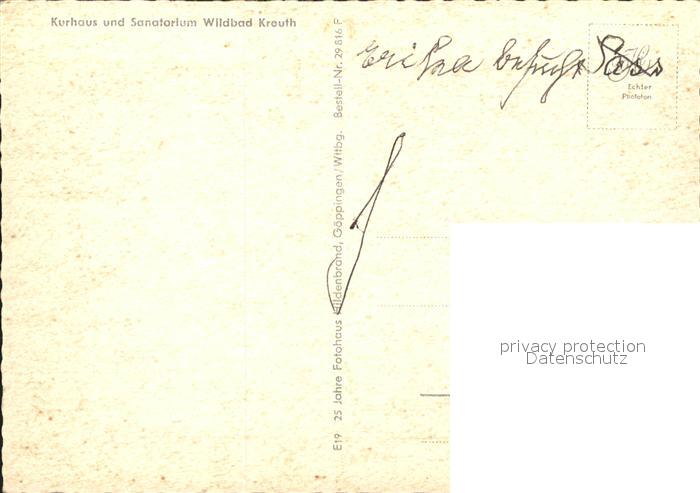 Kurhaus und Sanatorium Wildbad Kreuth
Erika besucht
Echter
Phototon
E19 25 Jahre Fotohaus Hildenbrand, Göppingen/Wttbg. Bestell-Nr. 29816 F
privacy protection
Datenschutz